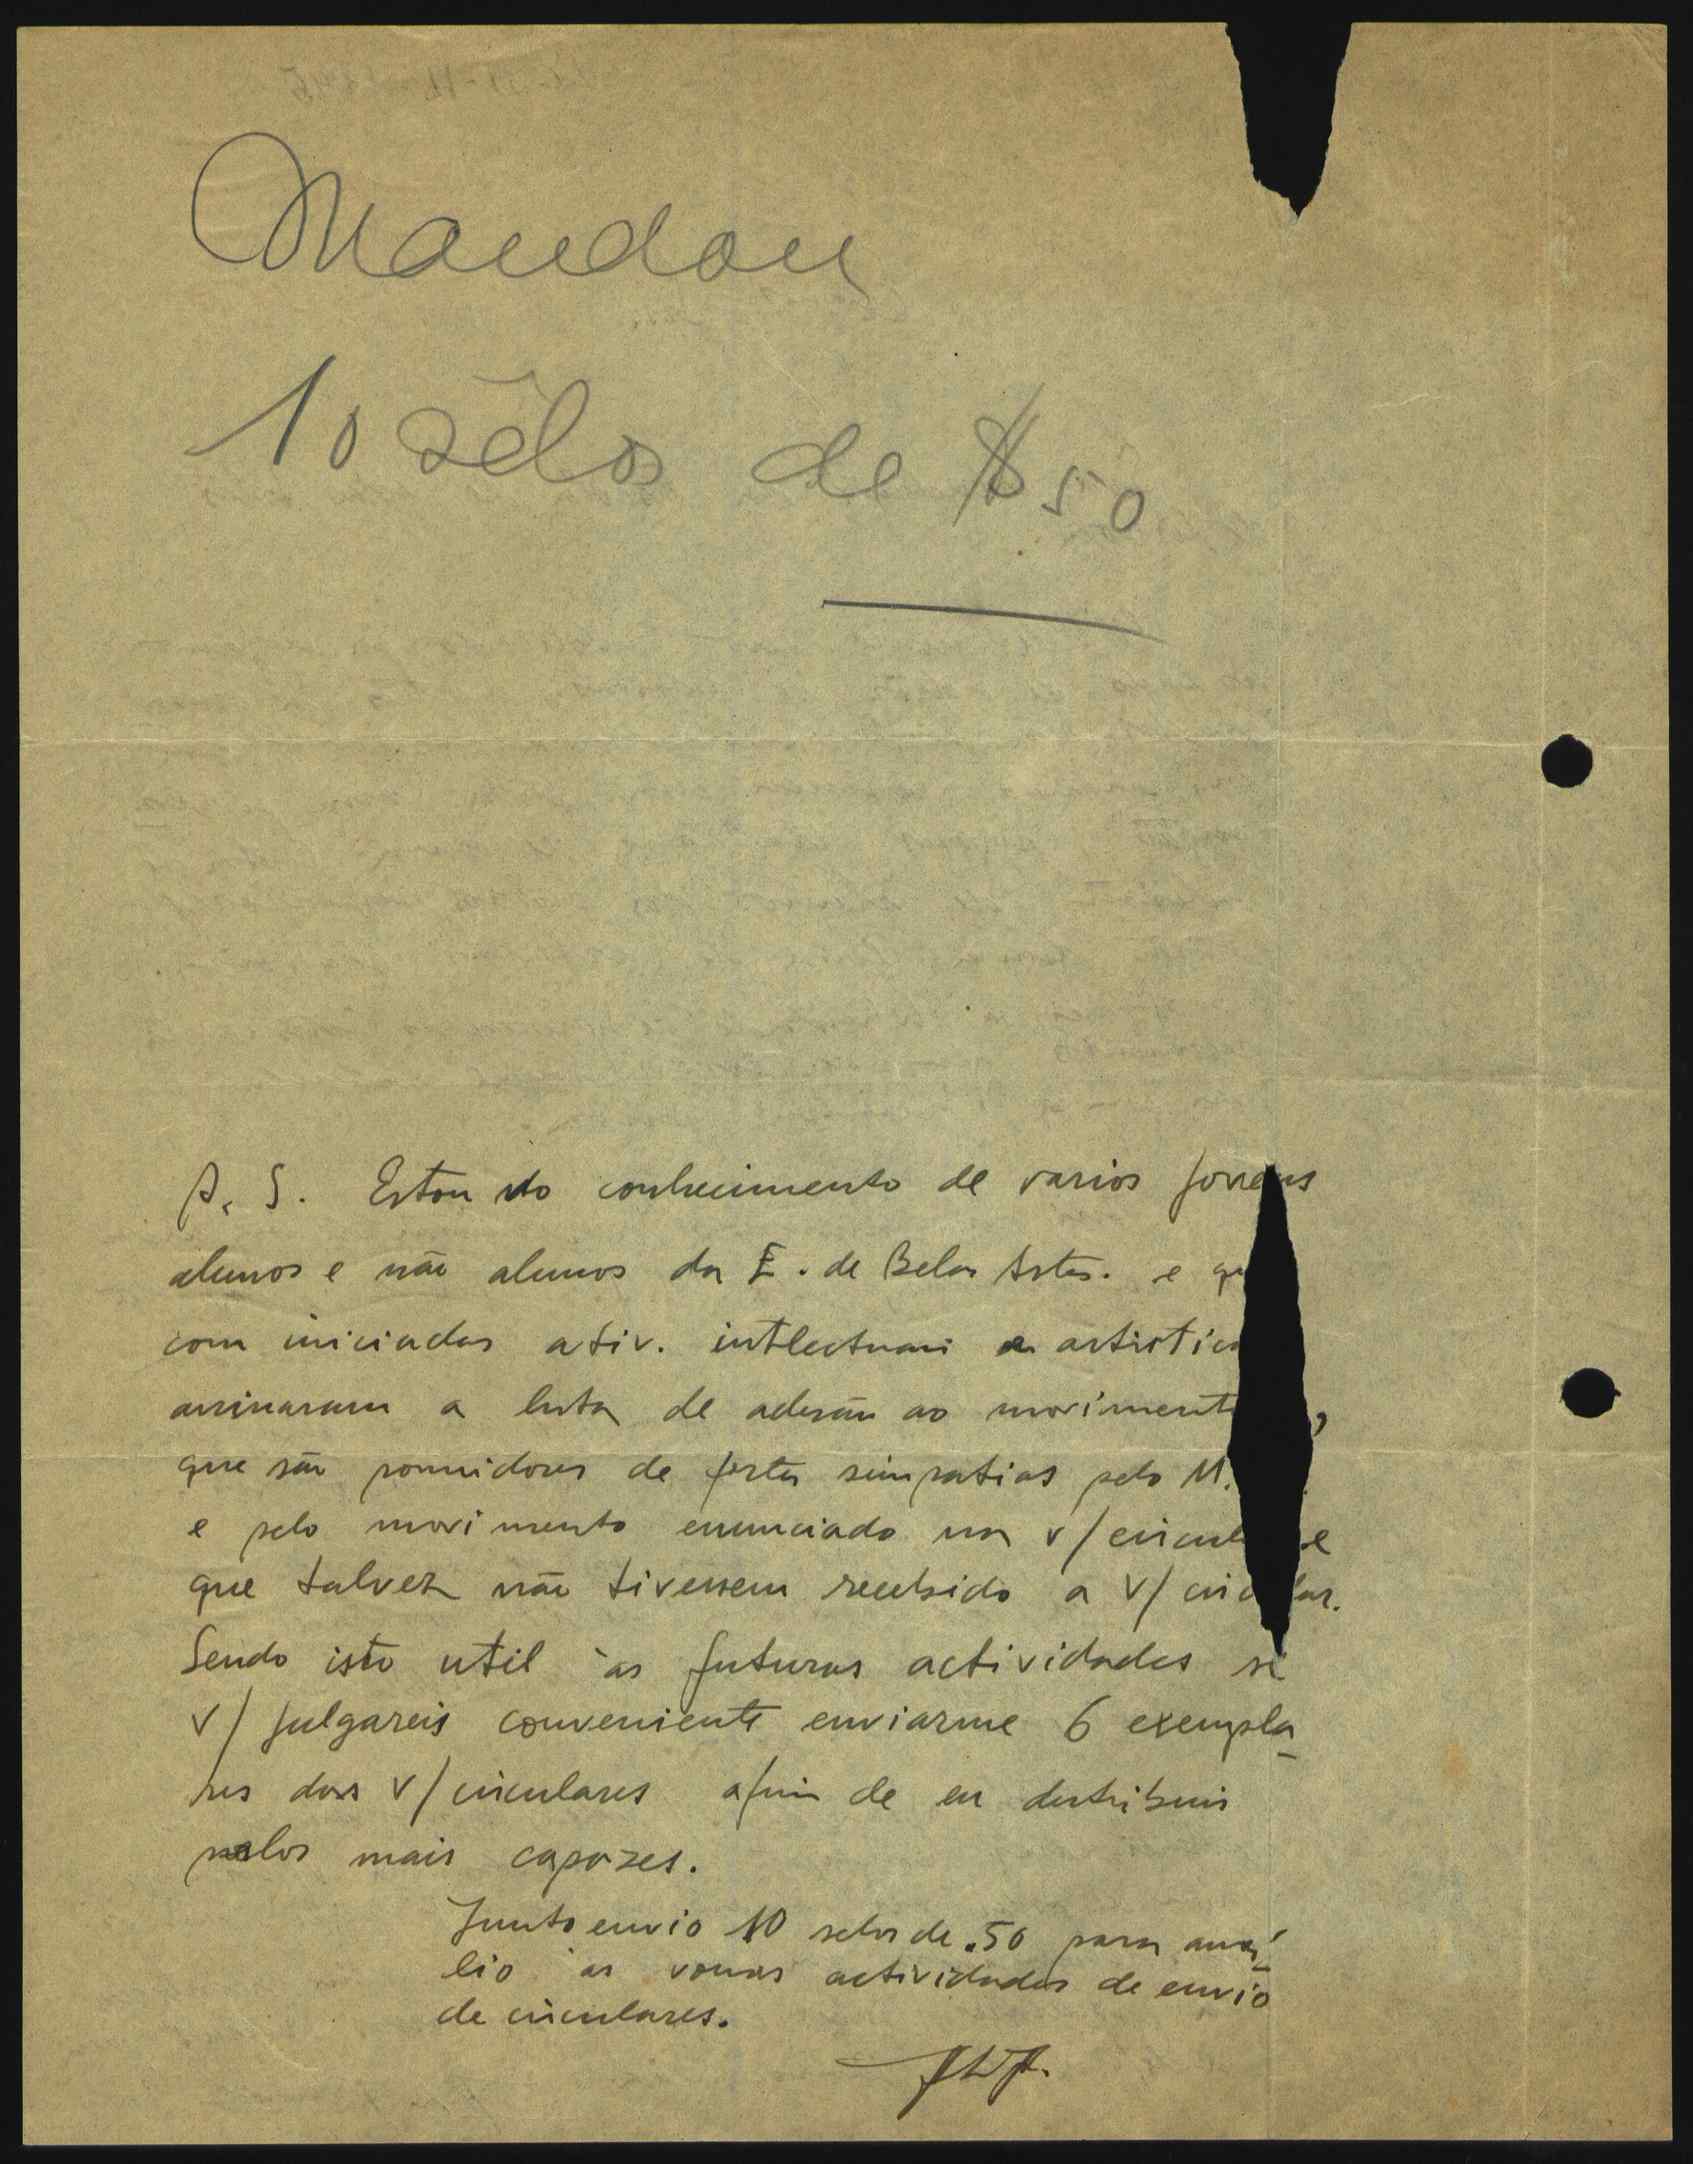 Mandou
10 sêlos de $50
P. S. Estou do conhecimento de varios jovens
alunos e não alunos da E. de Belas Artes. e qu
com iniciadas ativ. intlectuais e artistica
assinaram a lista de adesão ao movimento ,
que são possuidores de fortes simpatias pelo M.
e pelo movimento enunciado na v/ circul e
que talvez não tivessem recebido a v/ circular.
Sendo isto util às futuras actividades se
v/ julgareis conveniente enviarme 6 exempla_
res das v/ circulares afim de eu distribuir
pelos mais capazes.
Junto envio 10 selos de .50 para auxí_
lio às vossas actividades de envio
de circulares.